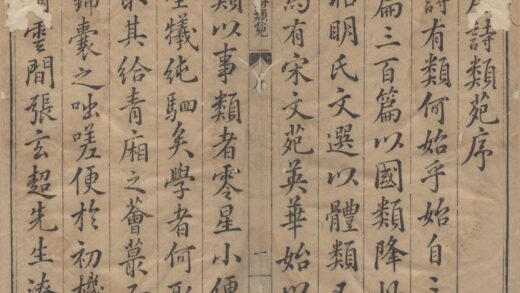 詩類苑序
詩有類何始乎始自
篇三百篇以國類降
昭明氏文選以體類
有宋文苑英華始以
類苑
一
類以事類者零星小便
犧純駟矣學者何
其給青廂之薈蕞
錦囊之咄嗟便於初機
雲間張玄超先生